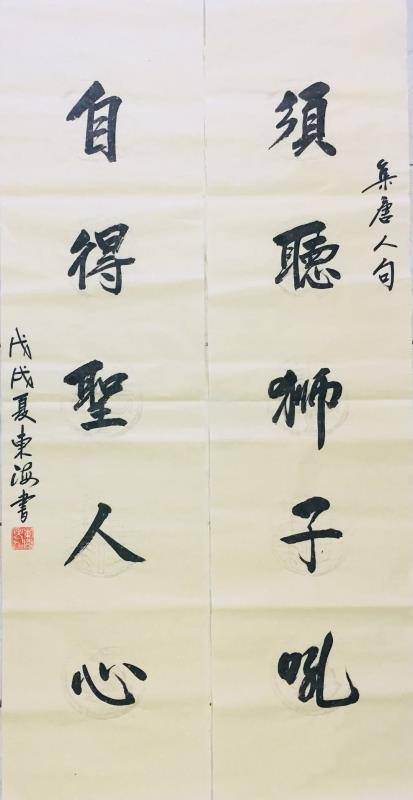 集唐人句
須聽獅子吼
自得聖人心
戊戌夏東海書